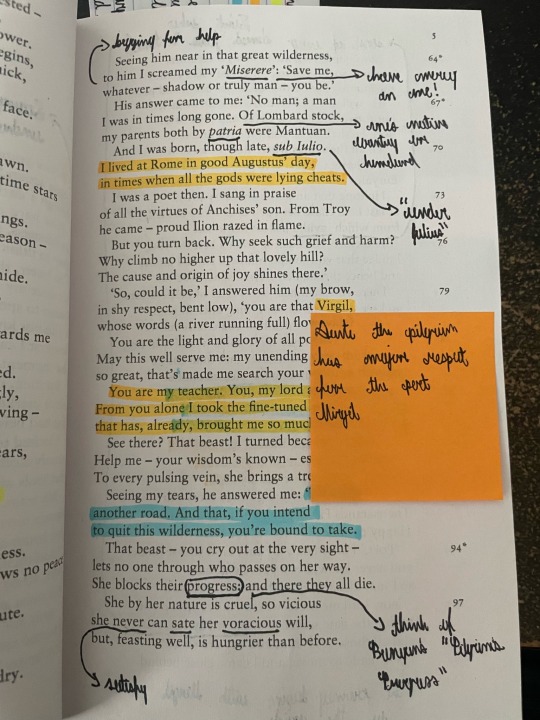 begging for help
5
Seeing him near in that great wilderness,
64*
to him I screamed my 'Miserere': 'Save me,
have mercy
on me!
whatever – shadow or truly man – you be.'
His answer came to me: 'No man; a man
67*
I was in times long gone. Of Lombard stock,
one's native
country or
homeland
my parents both by patria were Mantuan.
70
And I was born, though late, sub Iulio.
"under
Julius"
I lived at Rome in good Augustus' day,
in times when all the gods were lying cheats.
I was a poet then. I sang in praise
73
of all the virtues of Anchises' son. From Troy
he came – proud Ilion razed in flame.
But you turn back. Why seek such grief and harm?
76
Why climb no higher up that lovely hill?
The cause and origin of joy shines there.'
'So, could it be,' I answered him (my brow,
79
in shy respect, bent low), 'you are that Virgil,
whose words (a river running full)
You are the light and glory of all
May this well serve me: my unending
so great, that's made me search your
You are my teacher. You, my lord
From you alone I took the fine-tuned
that has, already, brought me so
See there? That beast! I turned
Help me – your wisdom's known –
To every pulsing vein, she brings a
Seeing my tears, he answered me:
another road. And that, if you intend
to quit this wilderness, you're bound to take.
Dante the pilgrim
has major respect
for the poet
Virgil
That beast – you cry out at the very sight –
94*
lets no one through who passes on her way.
She blocks their progress; and there they all die.
She by her nature is cruel, so vicious
97
she never can sate her voracious will,
but, feasting well, is hungrier than before.
think of
Bunyan's "Pilgrim's
Progress"
satisfy
sted –
ower.
egins,
face.
awn.
time stars
ngs.
eason –
hide.
ards me
ed.
ving –
ears,
ess.
ws no peace
ute.
dry.